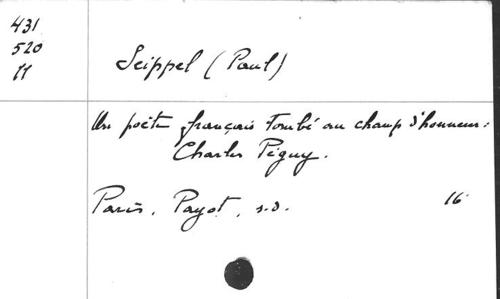 431
520
11
Seippel (Paul)
Un poète français tombé au champ d'honneur :
Charles Péguy.
Paris, Payot, s.d. 16